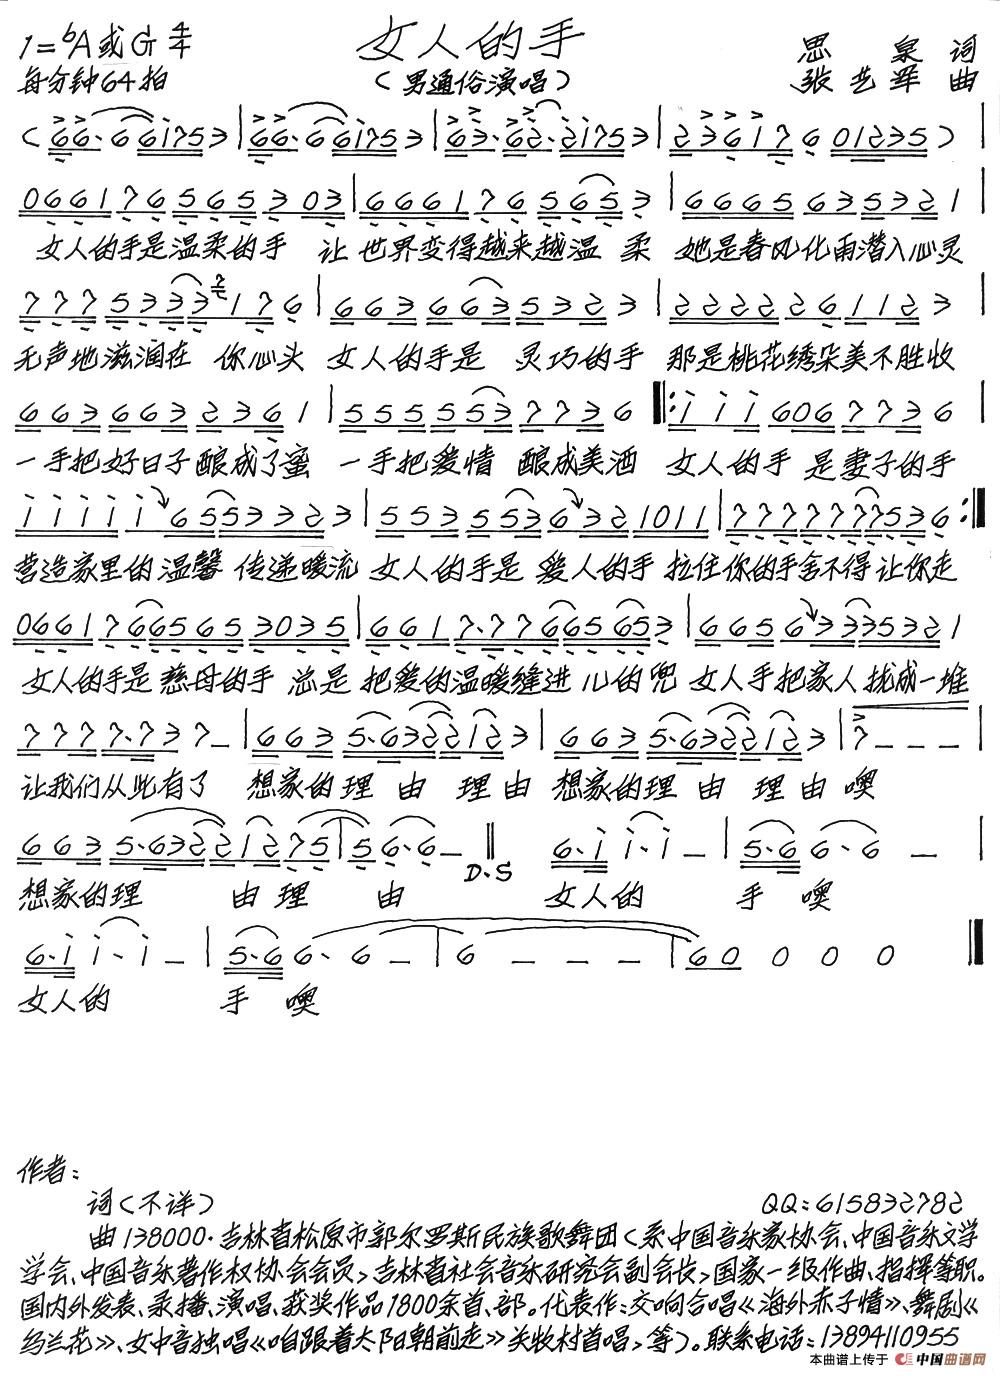 女人的手
1=bA或G 4/4
每分钟64拍
(男通俗演唱)
思泉 词
张艺军 曲
(66·661753|66·661753|63·62·21753|2361760 1235)
066176565303|66617656 53|66656353 21
女人的手是温柔的手 让世界变得越来越温柔 她是春风化雨潜入心灵
777533 3176|6636635323|22222611 23
无声地滋润在 你心头 女人的手是 灵巧的手 那是桃花绣朵美不胜收
663663 2361|5555537736‖:111606 7736
一手把好日子酿成了蜜 一手把爱情 酿成美酒 女人的手 是妻子的手
11111655 3323|553553632 1011|7777777536:‖
营造家里的温馨 传递暖流 女人的手是 爱人的手 拉住你的手舍不得让你走
06617665653035|6617·77665653|6656333 5321
女人的手是慈母的手 总是 把爱的温暖缝进 儿的兜 女人手把家人拢成一堆
7777·737–|6635·6322123|6635·6322123|7–––
让我们从此有了 想家的理 由 理由 想家的理 由 理由噢
6635·63221275|56·6–‖ 6·11·1–|5·66·6–
D.S
想家的理 由理 由 女人的 手 噢
6·11·1–|5·66·6–|6–––|60000‖
女人的 手 噢
作者:
词(不详)
QQ:615832782
曲138000·吉林省松原市郭尔罗斯民族歌舞团(系中国音乐家协会、中国音乐文学
学会、中国音乐著作权协会会员>吉林省社会音乐研究会副会长>国家一级作曲、指挥等职。
国内外发表、录播、演唱、获奖作品1800余首、部。代表作:交响合唱《海外赤子情》、舞剧《
乌兰花》、女中音独唱《咱跟着太阳朝前走》关牧村首唱>等)。联系电话:13894110955
本曲谱上传于 中国曲谱网